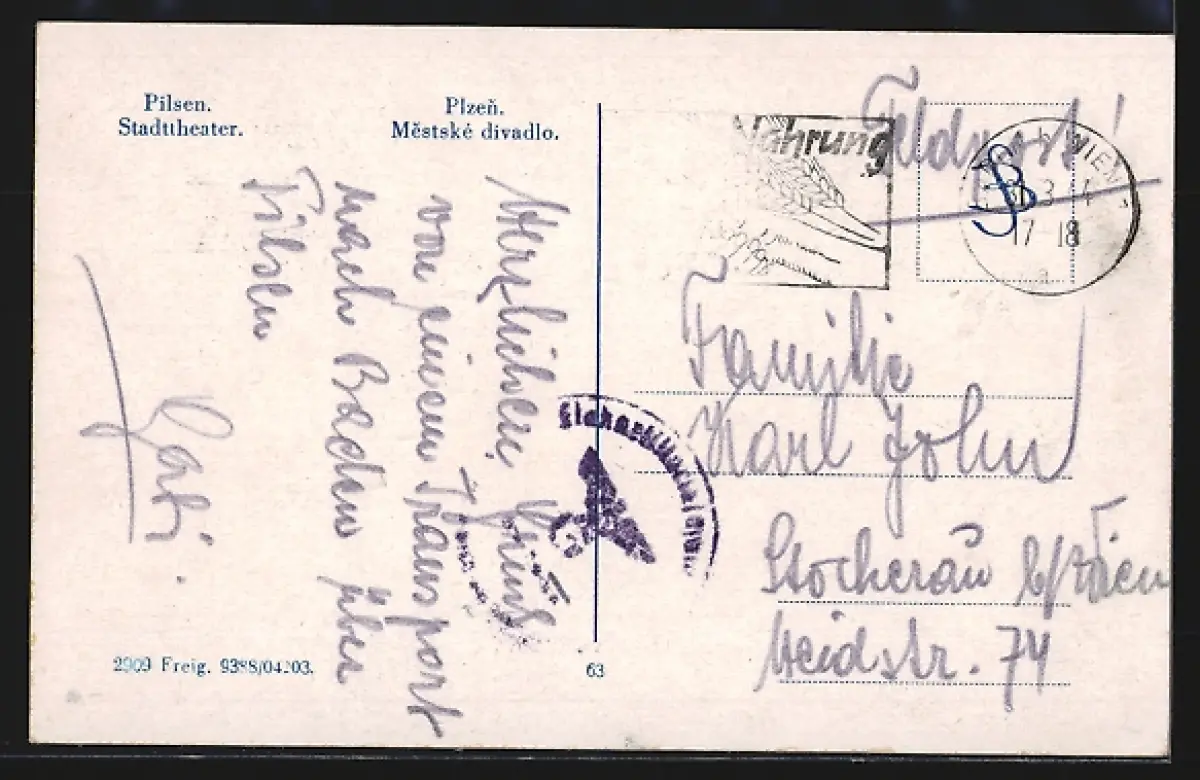 Pilsen.
Stadttheater.
Plzeň.
Městské divadlo.
Herzlichen Gruß
von einem Transport
nach Baden über
Pilsen
Gabi.
2909 Freig. 9388/04203.
63
Nahrung
Feldpost!
WIEN
17-18
a
Familie
Karl John
Stockerau b/Wien
Heidstr. 74